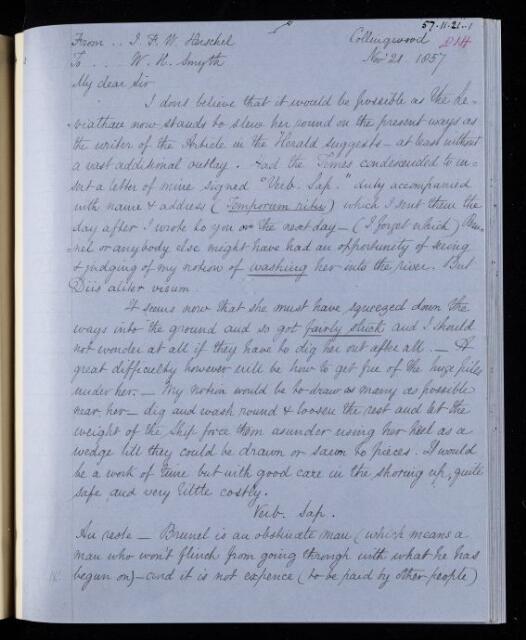 57.11.21.1
From .. J. F. W. Herschel Collingwood
To .... W. H. Smyth Nov 21. 1857
My dear Sir
I dont believe that it would be possible as the Le-
-viathan now stands to slew her round on the present ways as
the writer of the Article in the Herald suggests - at least without
a vast additional outlay. Had the Times condescended to in-
sert a letter of mine signed "Verb. Sap." duly accompanied
with name & address ( ) which I sent them the
day after I wrote to you or the next day - (I forget which) Bru-
nel or anybody else might have had an opportunity of seeing
& judging of my notion of washing her into the river. But
Diis aliter visum.
It seems now that she must have squeezed down the
ways into the ground and so got fairly stuck and I should
not wonder at all if they have to dig her out after all. - A
great difficulty however will be how to get free of the huge piles
under her. - My notion would be to draw as many as possible
near her - dig and wash round & loosen the rest and let the
weight of the ship force them asunder using her keel as a
wedge till they could be drawn or sawn to pieces. It would
be a work of time but with good care in the shoring up, quite
safe and very little costly.
Verb. Sap.
Au reste - Brunel is an obstinate man (which means a
man who won't flinch from going through with what he has
begun on) - and it is not expence (to be paid by other people)